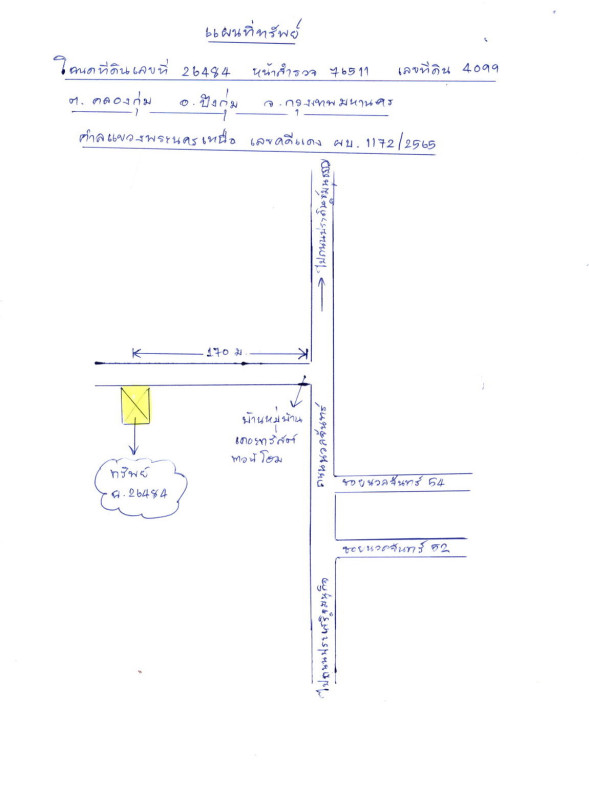 แผนที่ทรัพย์
โฉนดที่ดินเลขที่ 26484 หน้าสำรวจ 76511 เลขที่ดิน 4099
ต. คลองกุ่ม อ. บึงกุ่ม จ. กรุงเทพมหานคร
ศาลแขวงพระนครเหนือ เลขคดีแดง ผบ. 1172/2565
ไปถนนประดิษฐ์มนูธรรม
170 ม
บ้านหมู่บ้าน
ทาวน์โฮม
ถนนนวลจันทร์
ทรัพย์
ฉ. 26484
ซอยนวลจันทร์ 54
ซอยนวลจันทร์ 52
ไปถนนประเสริฐมนูกิจ